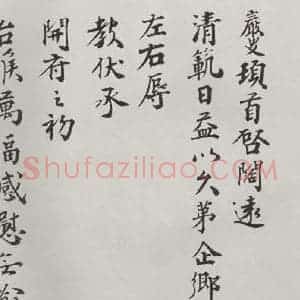 巖叟頓首啓闊遠
清範日益以久第企鄉
左右辱
教伏承
開府之初
台候萬福感慰無
Shufaziliao.com